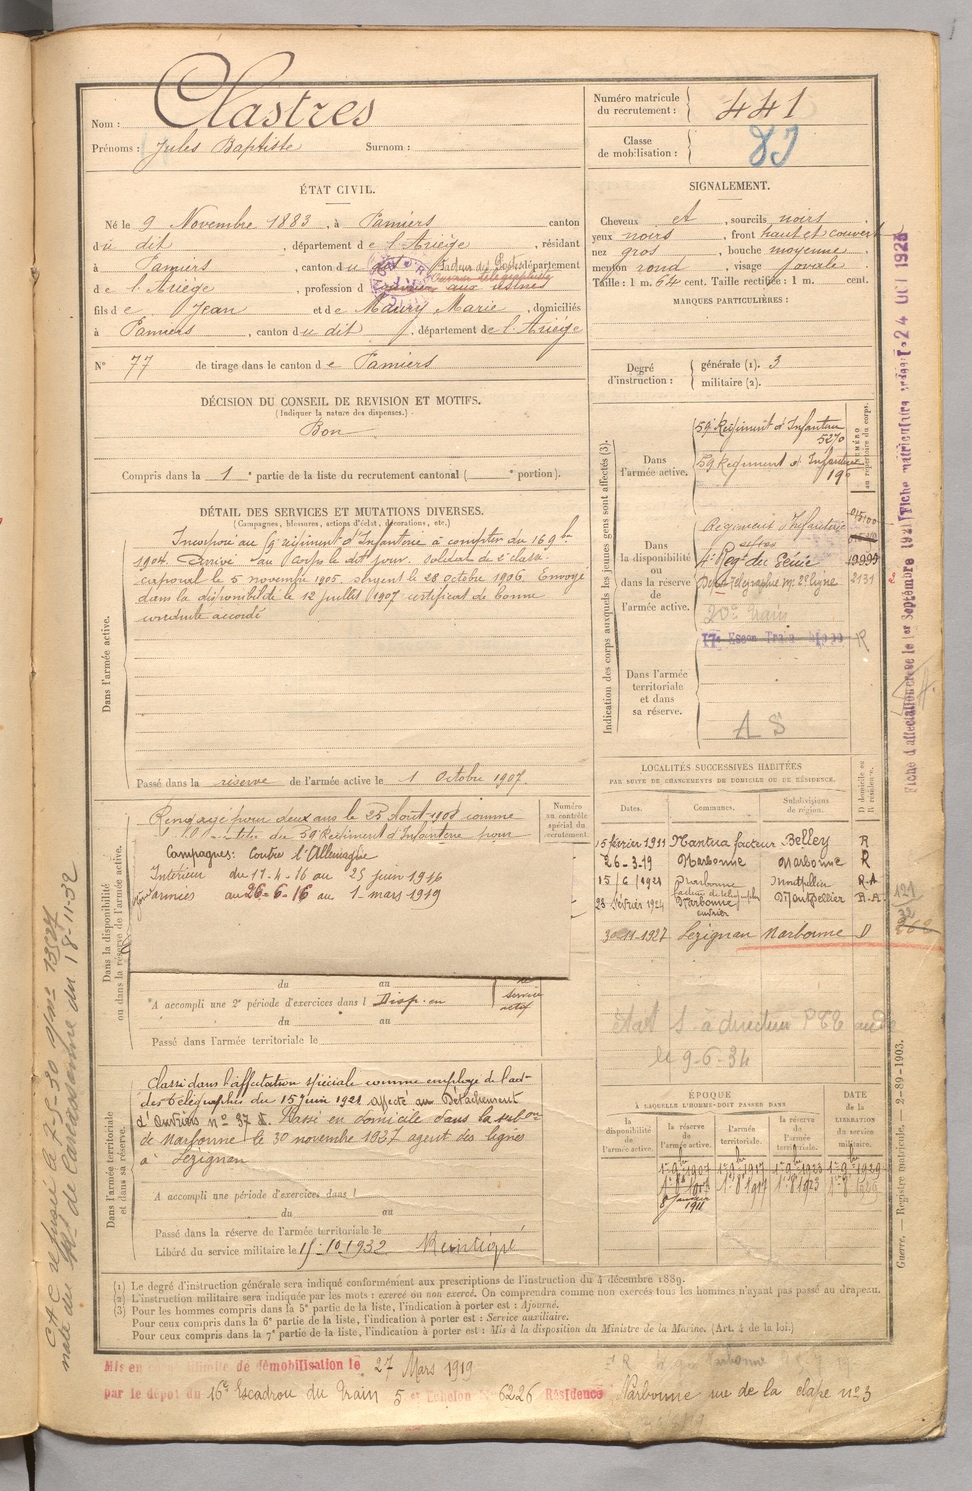 Nom : Clastres
Prénoms : Jules Baptiste Surnom :
Numéro matricule du recrutement : 441
Classe de mobilisation : 83
ÉTAT CIVIL.
Né le 9 Novembre 1883, à Pamiers canton
du dit, département de l'Ariège, résidant
à Pamiers, canton du dit Facteur des Postes département
de l'Ariège, profession d aux usines
fils de Jean et de Maury Marie, domiciliés
à Pamiers, canton du dit, département de l'Ariège
N° 77 de tirage dans le canton de Pamiers
SIGNALEMENT.
Cheveux et, sourcils noirs
yeux noirs, front haut et couvert
nez gros, bouche moyenne
menton rond, visage jovial
Taille : 1 m. 64 cent. Taille rectifiée : 1 m. cent.
MARQUES PARTICULIÈRES :
Degré d'instruction : générale (1). 3
militaire (2).
DÉCISION DU CONSEIL DE REVISION ET MOTIFS.
(Indiquer la nature des dispenses.)
Bon
Compris dans la 1e partie de la liste du recrutement cantonal ( e portion).
DÉTAIL DES SERVICES ET MUTATIONS DIVERSES.
(Campagnes, blessures, actions d'éclat, décorations, etc.)
Dans l'armée active.
Incorporé au régiment d'Infanterie à compter du 16 9bre
1904. Arrivé au corps le dit jour. soldat de 2e classe.
caporal le 5 novembre 1905. sergent le 28 octobre 1906. Envoyé
dans la disponibilité le 12 juillet 1907 certificat de bonne
conduite accordé
Passé dans la réserve de l'armée active le 1 Octobre 1907
Indication des corps auxquels les jeunes gens sont affectés (3).
NUMÉRO au répertoire du corps.
Dans l'armée active.
59e Régiment d'Infanterie 5270
59 Régiment d'Infanterie
Dans la disponibilité ou dans la réserve de l'armée active.
Régiment d'Infanterie
4e Reg. du Génie 19999
Dépt Télégraphie mre 2e ligne 2131
20e Train
17e Escon Train R
Dans l'armée territoriale et dans sa réserve.
A S
Dans la disponibilité ou dans la réserve de l'armée active.
Numéro au contrôle spécial du recrutement.
Rengagé pour deux ans le 25 Août 1908 comme
au titre du 59e Régiment d'Infanterie pour
Campagnes : Contre l'Allemagne
Intérieur du 17-4-16 au 25 juin 1916
armées au 26-6-16 au 1 mars 1919
du au
A accompli une 2e période d'exercices dans l Disp. en
service actif
du au
Passé dans l'armée territoriale le
LOCALITÉS SUCCESSIVES HABITÉES
PAR SUITE DE CHANGEMENTS DE DOMICILE OU DE RÉSIDENCE.
Dates. Communes. Subdivisions de région. D domicile ou R résidence.
15 février 1911 Nantua facteur Belley R
26-3-19 Narbonne Narbonne R
15/6/1921 Narbonne Montpellier R-A
23 février 1924 Narbonne Montpellier R-A
ouvrier
30-11-1927 Lézignan Narbonne D
S. à directeur PTT aude
le 9-6-34
Dans l'armée territoriale et dans sa réserve.
Classé dans l'affectation spéciale comme employé de l'adon
des télégraphes du 15 juin 1921 affecté au Détachement
d'Ouvriers n° 37 A. Passé en domicile dans la subon
de Narbonne le 30 novembre 1927 agent des lignes
à Lézignan
A accompli une période d'exercices dans l
du au
Passé dans la réserve de l'armée territoriale le
Libéré du service militaire le 15-10-1932
ÉPOQUE
À LAQUELLE L'HOMME DOIT PASSER DANS
la disponibilité de l'armée active. la réserve de l'armée active. l'armée territoriale. la réserve de l'armée territoriale. DATE de la LIBÉRATION du service militaire.
1er 9bre 1907 1er 9bre 1917 1er 9bre 1923 1er 9bre 1929
1er 8bre 1907 1er 8 1917 1er 8 1923 1er 8 1929
8 janvier 1911
(1) Le degré d'instruction générale sera indiqué conformément aux prescriptions de l'instruction du 4 décembre 1889.
(2) L'instruction militaire sera indiquée par les mots : exercé ou non exercé. On comprendra comme non exercés tous les hommes n'ayant pas passé au drapeau.
(3) Pour les hommes compris dans la 5e partie de la liste, l'indication à porter est : Ajourné.
Pour ceux compris dans la 6e partie de la liste, l'indication à porter est : Service auxiliaire.
Pour ceux compris dans la 7e partie de la liste, l'indication à porter est : Mis à la disposition du Ministre de la Marine. (Art. 4 de la loi.)
Mis en congé illimité de démobilisation le 27 Mars 1919
par le dépot du 16e Escadron du Train 5e Echelon N° 6226 Résidence Narbonne rue de la clape n° 3
Fiche d'affectation créée le 1er Septembre 1921 Fiche matriculaire rédigée le 24 OCT 1925
Guerre. — Registre matricule. — 2-89-1903.
C.A.C. refusée le 7-5-30
nale du de Carcassonne du 18-11-32